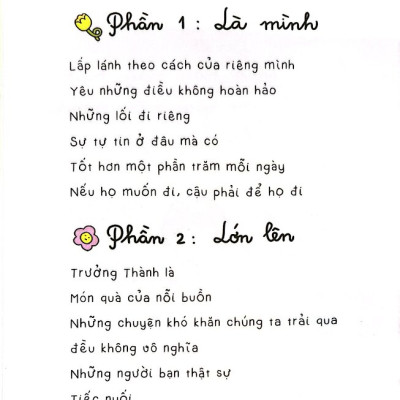 Phần 1 : Là mình
Lấp lánh theo cách của riêng mình
Yêu những điều không hoàn hảo
Những lối đi riêng
Sự tự tin ở đâu mà có
Tốt hơn một phần trăm mỗi ngày
Nếu họ muốn đi, cậu phải để họ đi
Phần 2 : Lớn lên
Trưởng Thành là
Món quà của nỗi buồn
Những chuyện khó khăn chúng ta trải qua
đều không vô nghĩa
Những người bạn thật sự
Tiếc nuối